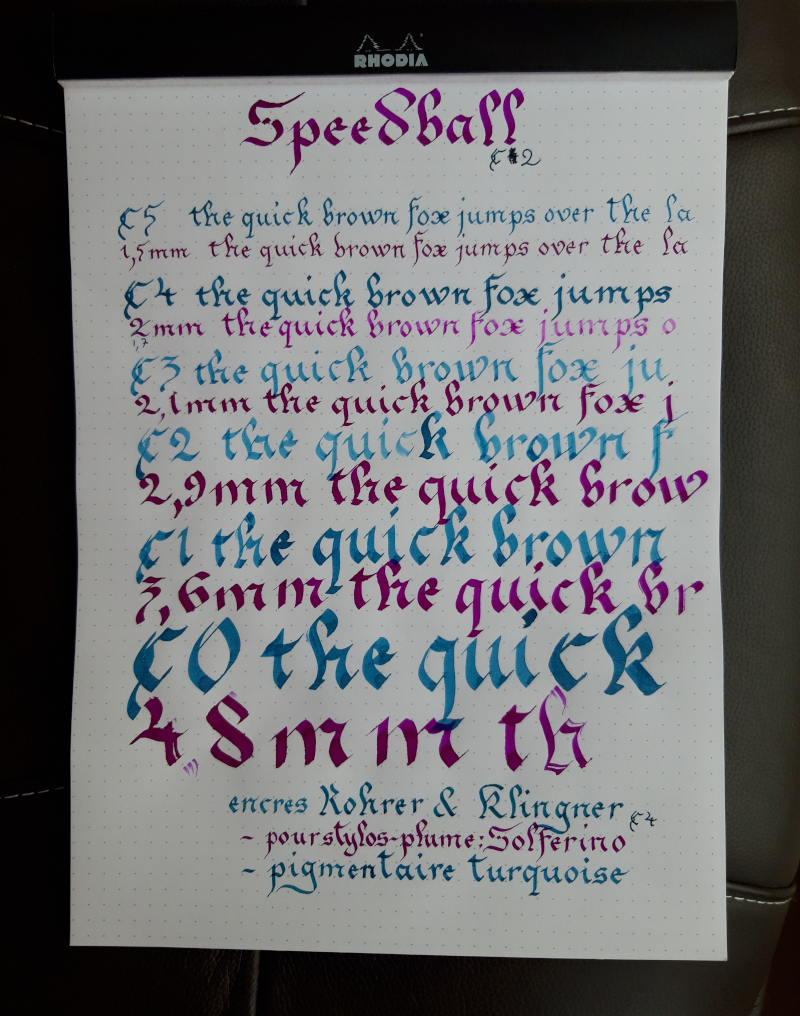 RHODIA
Speedball
C 2
C5 the quick brown fox jumps over the la
1,5mm the quick brown fox jumps over the la
C4 the quick brown fox jumps
2mm the quick brown fox jumps o
1,7
C3 the quick brown fox ju
2,1mm the quick brown fox j
C2 the quick brown f
2,9mm the quick brow
C1 the quick brown
3,6mm the quick br
C0 the quick
4,8mm th
encres Rohrer & Klingner
C4
- pour stylos-plume: Solferino
- pigmentaire turquoise